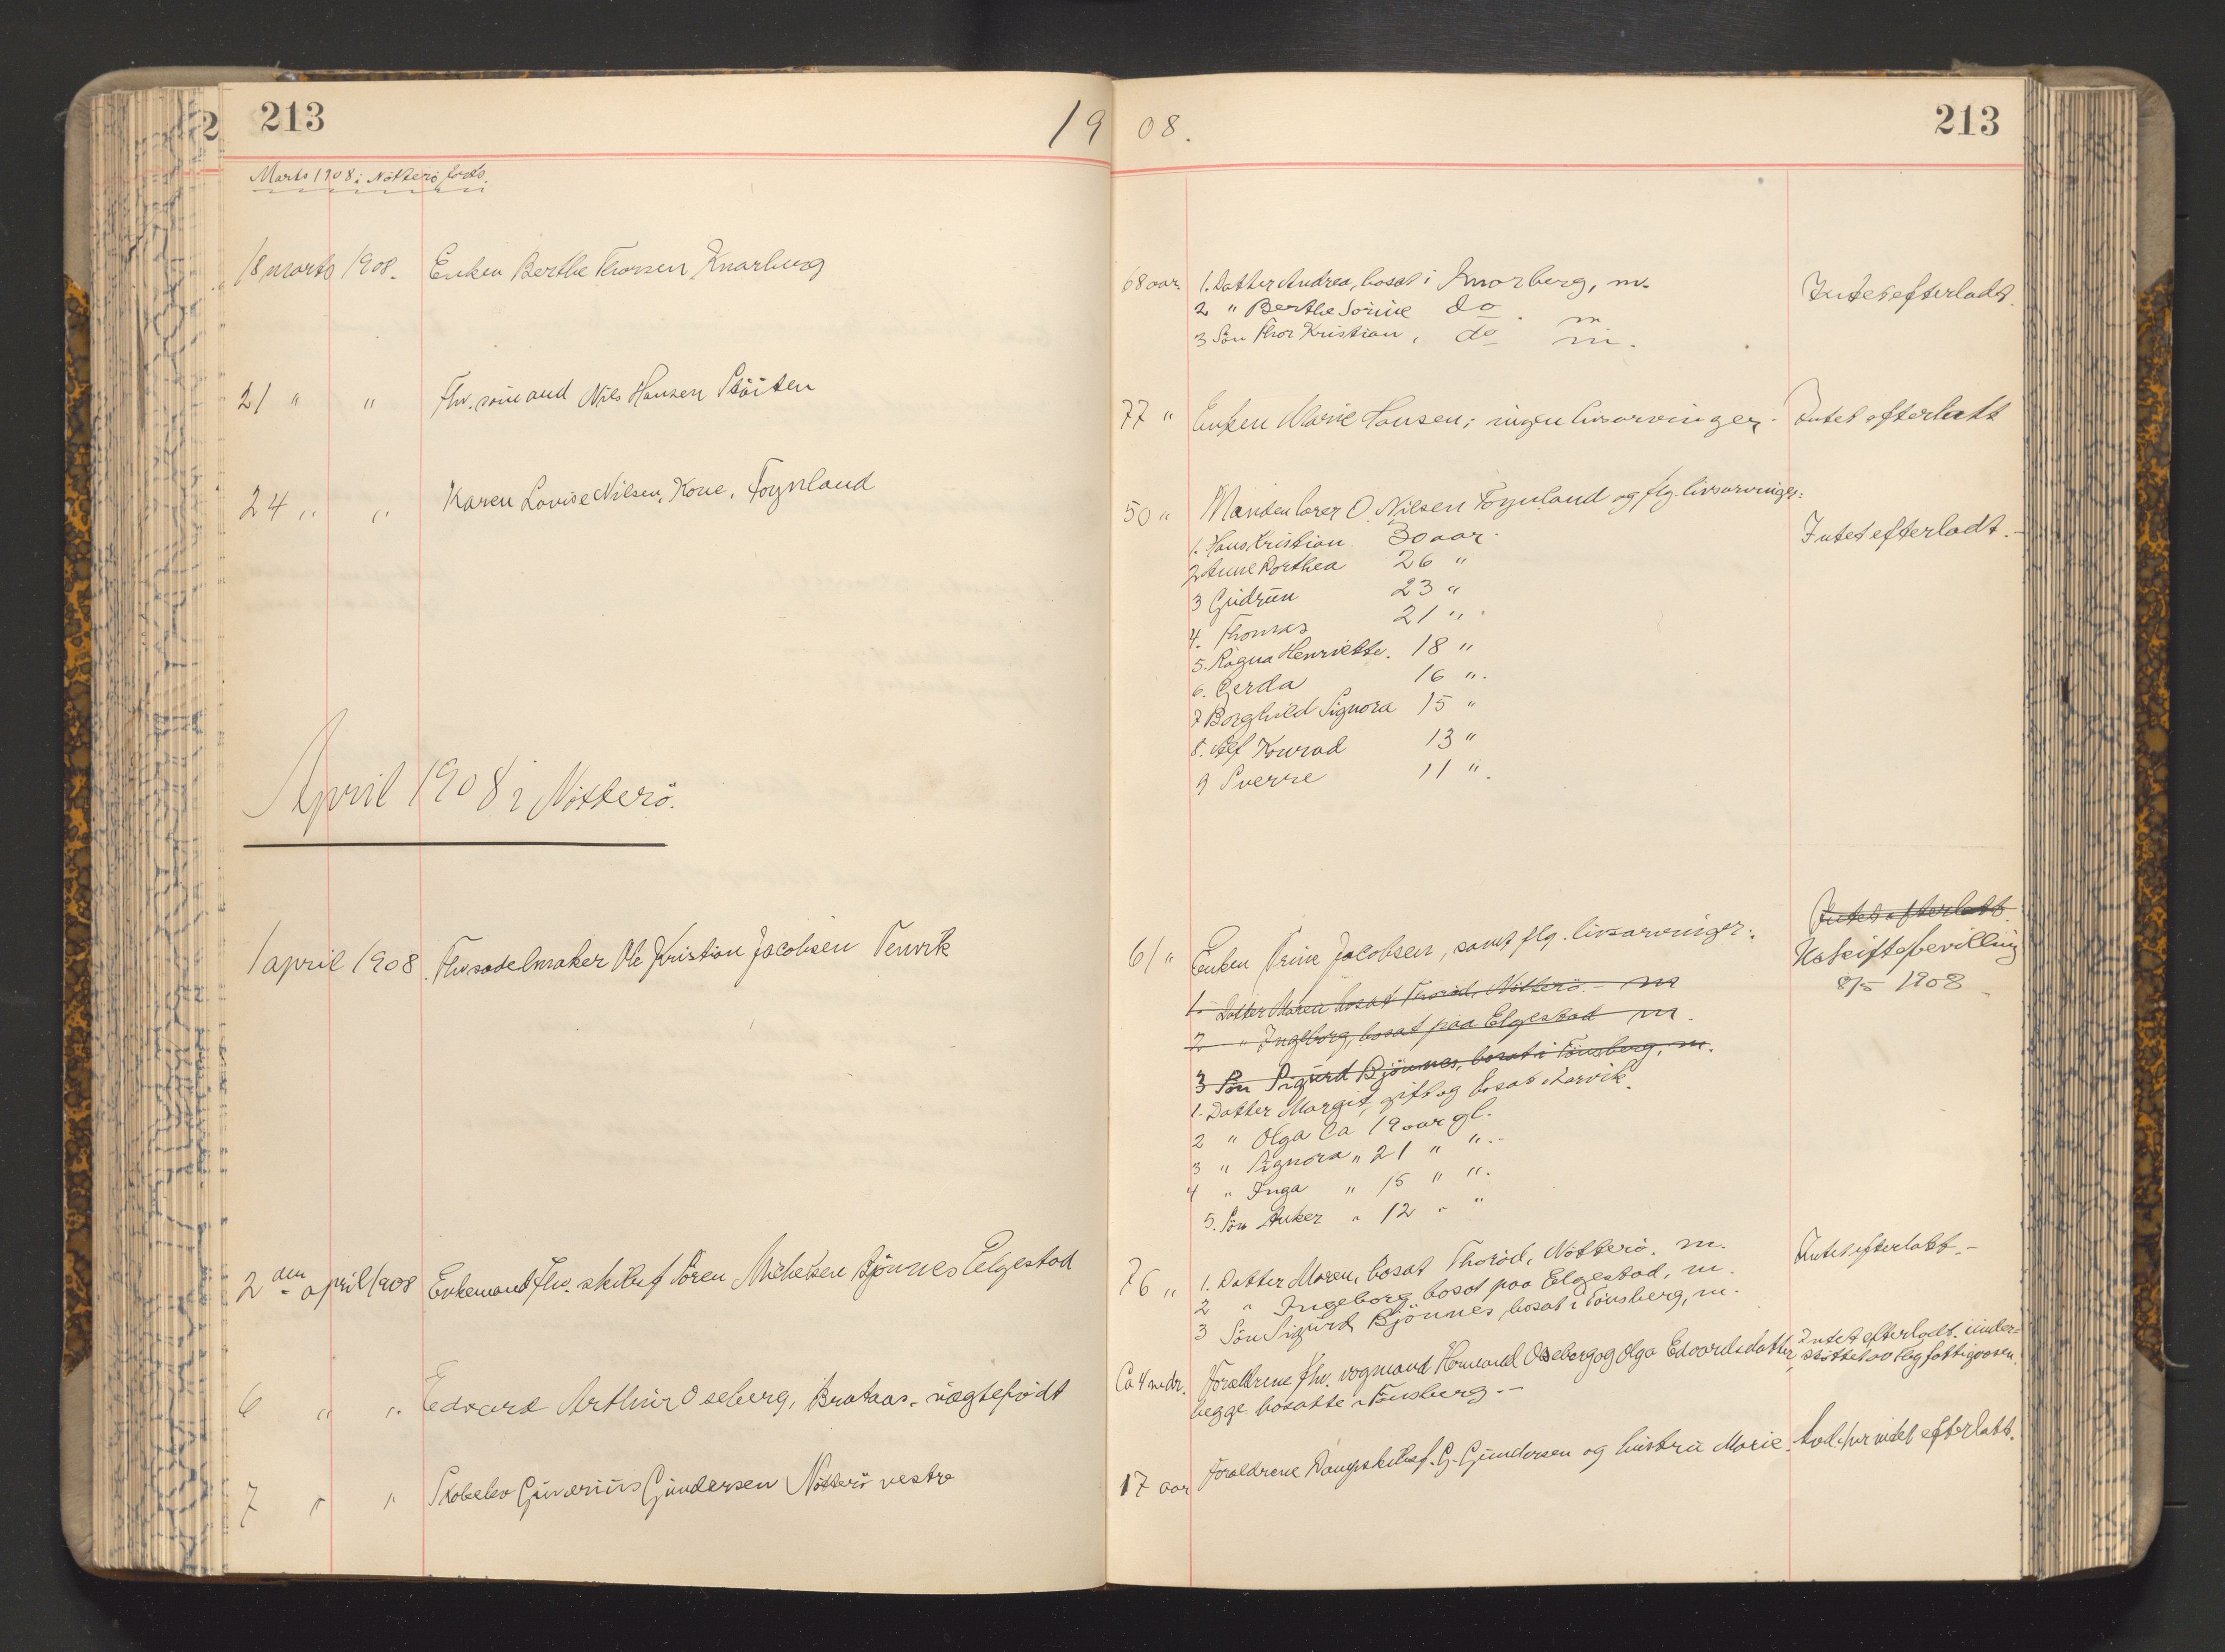 213
19 08.
213
Marts 1908 i Nötterö forts.
18 marts 1908. Enken Berthe Thorsen Knarberg
68 aar. 1. Datter Andrea, bosat i Knarberg, m.
2 " Berthe Sorine do. m
3 Sön Thor Kristian, do m.
Intet efterladt.
21 " " Fhv. sömand Nils Hansen Stöiten
77 " Enken Marie Hansen; ingen livsarvinger.
Intet efterlatt
24 " " Karen Lovise Nilsen, Kone, Föynland
50 " Manden lærer O. Nilsen Föynland og flg. livsarvinger:
1. Hans Kristian 30 aar.
2 Anne Dorthea 26 "
3 Gudrun 23 "
4. Thomas 21 "
5. Ragna Henriette. 18 "
6. Gerda 16 ".
7 Borghild Signora 15 "
8. Alf Konrad 13 "
9 Sverre 11 ".
Intet efterladt.-
April 1908 i Nötterö.
1 april 1908. Fhv sadelmaker Ole Kristian Jacobsen Tenvik
61 " Enken Trine Jacobsen, samt flg. livsarvinger:
1. Datter Maren bosat Thoröd, Nötterö.- m
2 " Ingeborg, bosat paa Elgestad m.
3 Sön Sigurd Bjönnes, bosat i Tönsberg, m.
1. Datter Margit, gift og bosat i Narvik.
2 " Olga Ca 19 aar gl.
3 " Signora " 21 " ".-
4 " Inga " 15 " ".
5. Sön Anker " 12 " "
Intet efterlatt.
Uskiftebevilling
8/5 1908
2den april 1908 Enkemand Fhv. skibsf Sören Michelsen Bjönnes Elgestad
76 " 1. Datter Maren, bosat Thoröd, Nötterö. m.
2 " Ingeborg bosat paa Elgestad, m.
3 Sön Sigurd Bjönnes bosat i Tönsberg, m.
Intet efterlatt.-
6 " ". Edvard Arthur Oseberg, Brataas - uægtefödt
Ca 4 mdr. Forældrene fhv. vognmand Hermand Oseberg og Olga Edvardsdatter,
begge bosatte i Tönsberg.-
Intet efterladt. under-
støttet av Tbg fattigvæsen.
7 " " Skobelev Gunerius Gundersen Nötterö vestre
17 aar Forældrene Dampskibsf. G. Gundersen og hustru Marie.
intet efterlatt.